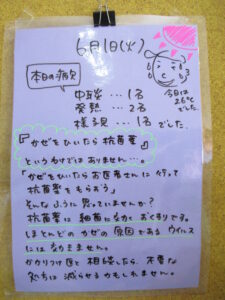 6月1日(火)
本日の病欠
中耳炎…1名
発熱…2名
様子見…1名
でした。
今日は
26℃
でした。
『かぜをひいたら抗菌薬』
というわけではありません…。
「かぜをひいたらお医者さんに行って
抗菌薬をもらおう」
そんなふうに思っていませんか?
抗菌薬は細菌に効くおくすりです。
ほとんどのかぜの原因であるウイルス
には効きません。
かかりつけ医と相談したら、不要な
処方は減らせるかもしれません。